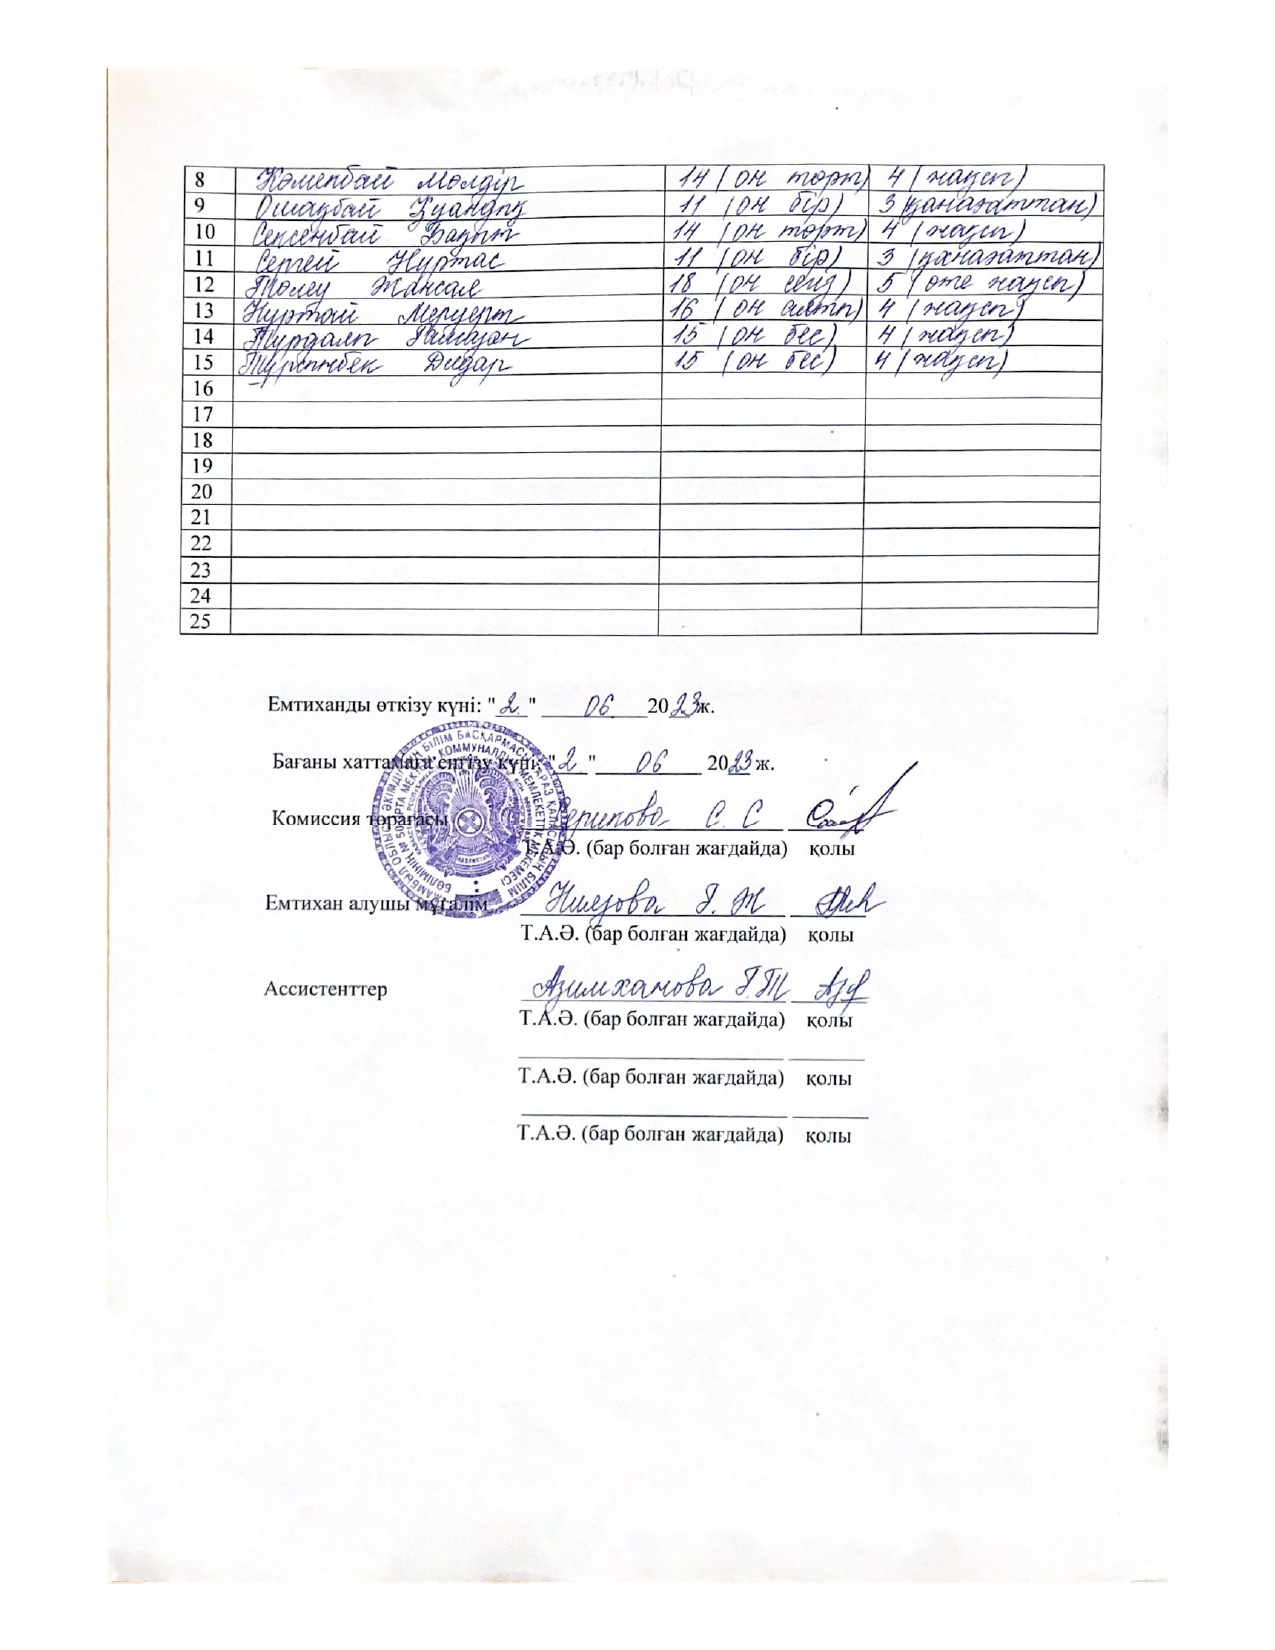 8 Көмекбай Мөлдір 14 (он төрт) 4 (жақсы)
9 Ошақбай Қуаныш 11 (он бір) 3 (қанағаттан)
10 Сексенбай Бақыт 14 (он төрт) 4 (жақсы)
11 Сергей Нұртас 11 (он бір) 3 (қанағаттан)
12 Төлеу Жансая 18 (он сегіз) 5 (өте жақсы)
13 Нұртай Меруерт 16 (он алты) 4 (жақсы)
14 Тұрдалы 15 (он бес) 4 (жақсы)
15 Тұрғынбек Дидар 15 (он бес) 4 (жақсы)
16
17
18
19
20
21
22
23
24
25
Емтиханды өткізу күні: "2" 06 2023ж.
Бағаны хаттамаға енгізу күні: "2" 06 2023 ж.
Комиссия төрағасы С. С
Т.А.Ә. (бар болған жағдайда) қолы
Емтихан алушы мұғалім Ниязова Г. Ж
Т.А.Ә. (бар болған жағдайда) қолы
Ассистенттер Азимханова Г.Т
Т.А.Ә. (бар болған жағдайда) қолы
Т.А.Ә. (бар болған жағдайда) қолы
Т.А.Ә. (бар болған жағдайда) қолы